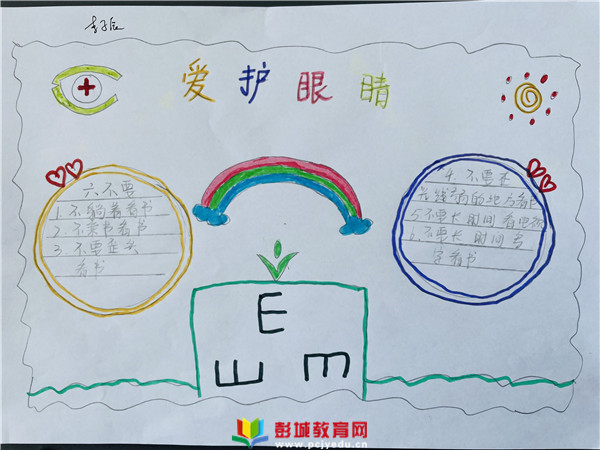 爱护眼睛
六不要
1.不躺着看书
2.不乘车看书
3.不要歪头
看书
4.不要在
光线
的地方看
5.不要长时间看电视
6.不要长时间
看书
E
E
E
彭城教育网
www.pcjyedu.cn